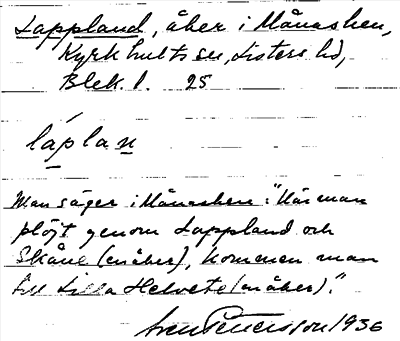 Lappland, åker i Månashen,
Kyrkhults sn, Listers hd,
Blek. l. 25
láplan
Man säger i Månashen: "När man
plöjt genom Lappland och
Skåne (en åker), kommer man
till Lilla Helvete (en åker)."
Sven Petersson 1936